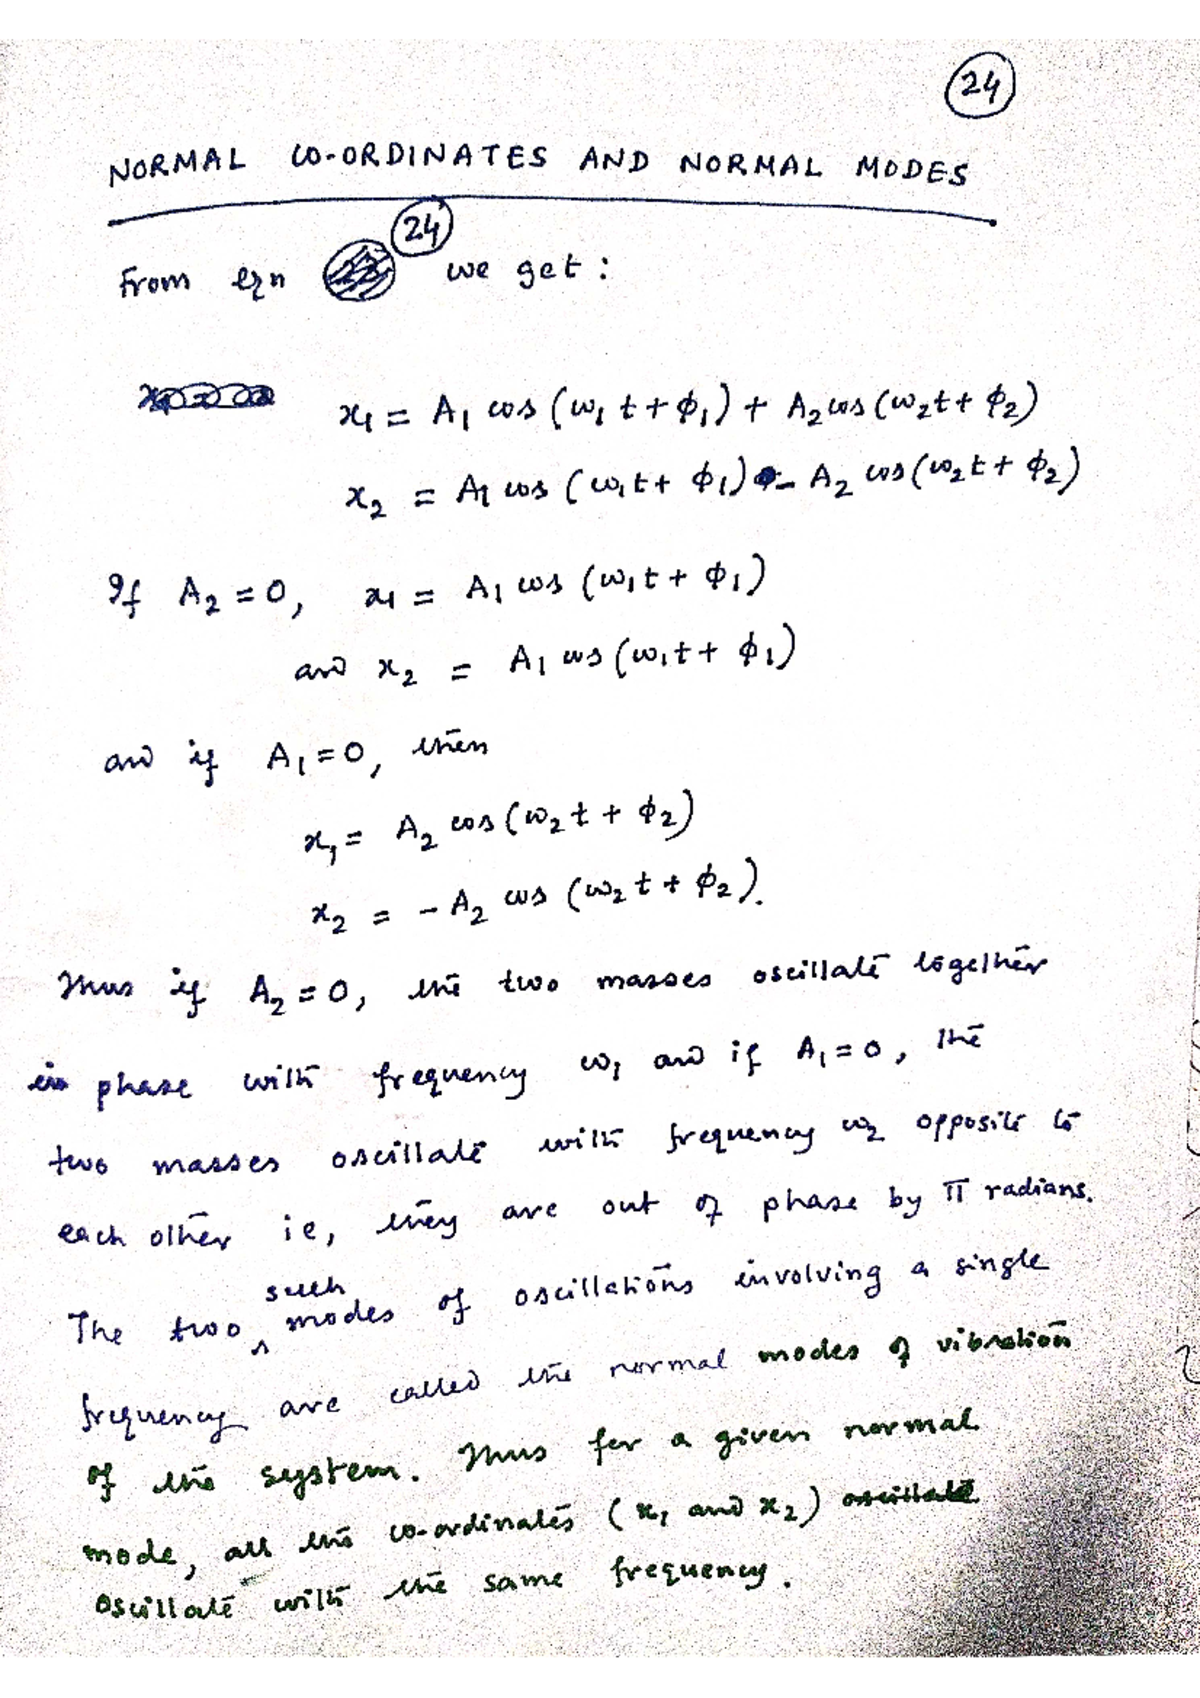 24
NORMAL CO-ORDINATES AND NORMAL MODES
From eqn 24 we get :
x₁ = A₁ cos (ω₁ t + ϕ₁) + A₂ cos (ω₂t + ϕ₂)
x₂ = A₁ cos (ω₁t + ϕ₁) - A₂ cos (ω₂t + ϕ₂)
If A₂ = 0, x₁ = A₁ cos (ω₁t + ϕ₁)
and x₂ = A₁ cos (ω₁t + ϕ₁)
and if A₁ = 0, then
x₁ = A₂ cos (ω₂ t + ϕ₂)
x₂ = - A₂ cos (ω₂ t + ϕ₂).
Thus if A₂ = 0, the two masses oscillate together
in phase with frequency ω₁ and if A₁ = 0, the
two masses oscillate with frequency ω₂ opposite to
each other ie, they are out of phase by π radians.
The two such modes of oscillations involving a single
frequency are called the normal modes of vibration
of the system. Thus for a given normal
mode, all the co-ordinates (x₁ and x₂) oscillate
oscillate with the same frequency.